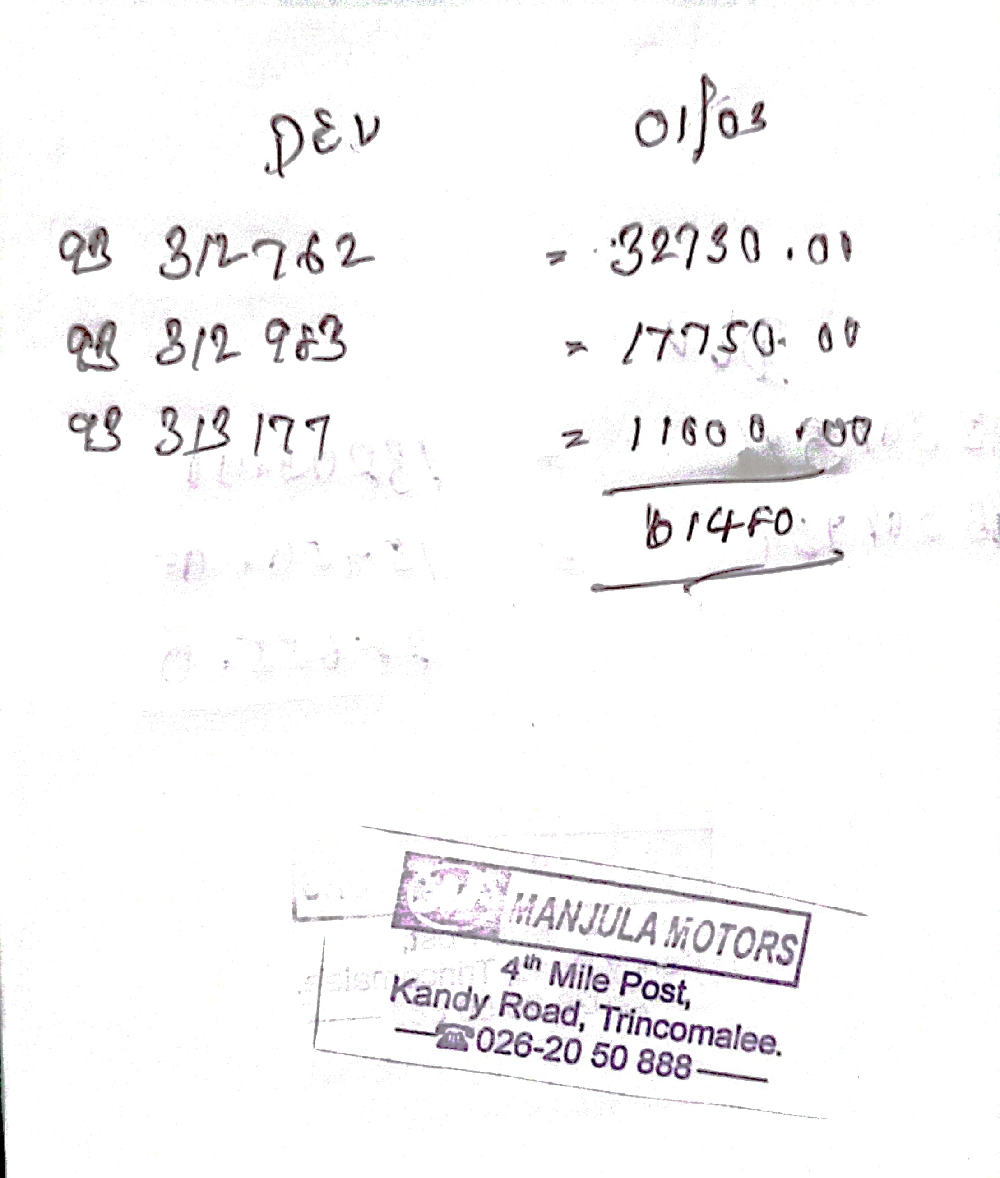 DEV 01/03
93 312762 = 32730.00
93 312 983 = 17750.00
93 313 177 = 11000.00
61480
MANJULA MOTORS
4th Mile Post,
Kandy Road, Trincomalee.
☎026-20 50 888